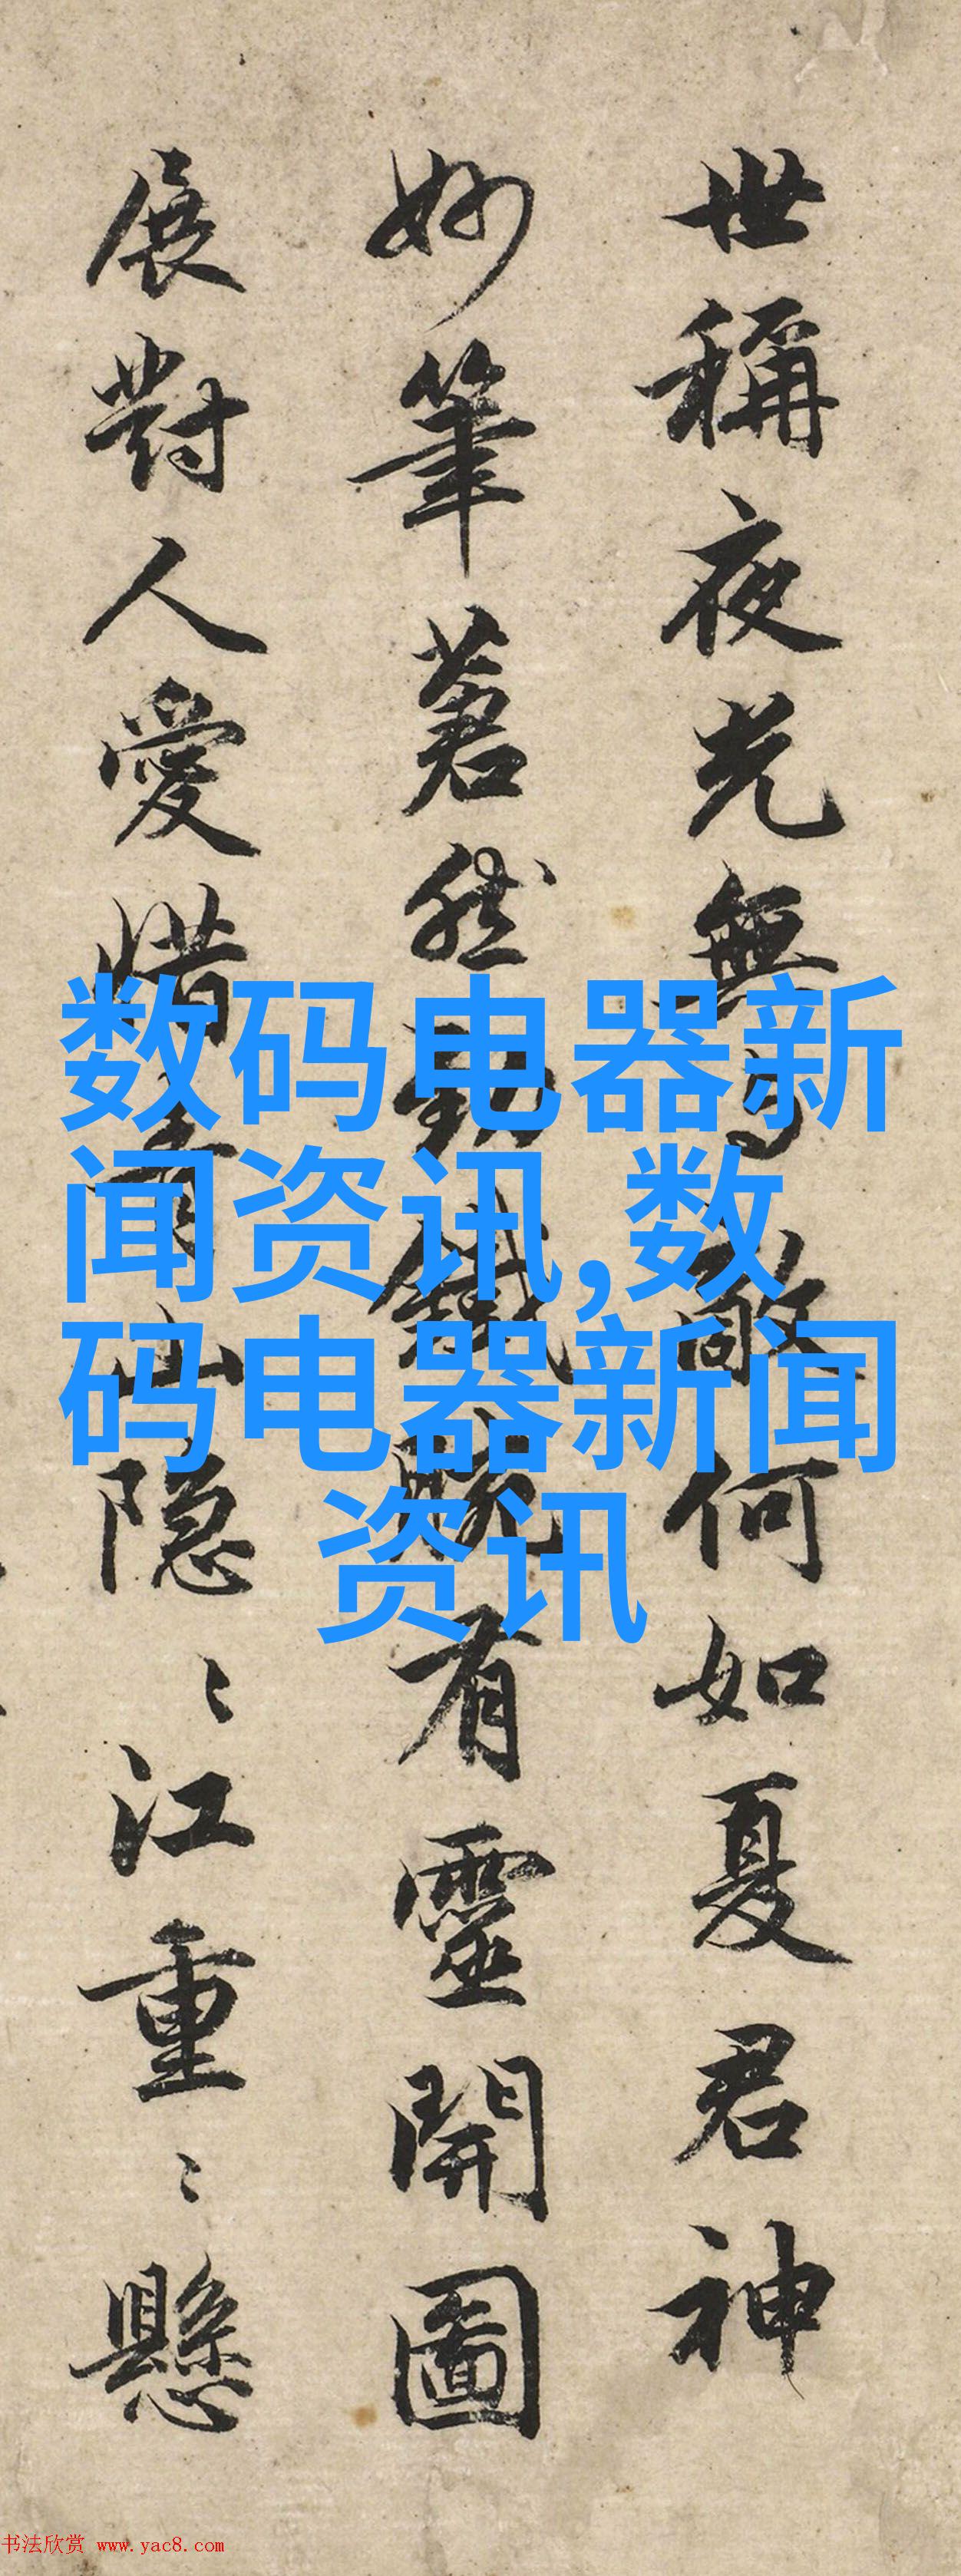 世稱夜光無與敵何如夏君神
妙筆蒼然勁鐵腕有靈開圖
展對人愛惜青山隐〻江重〻懸
数码电器新
闻资讯,数
码电器新闻
资讯
书法欣赏 www.yac8.com